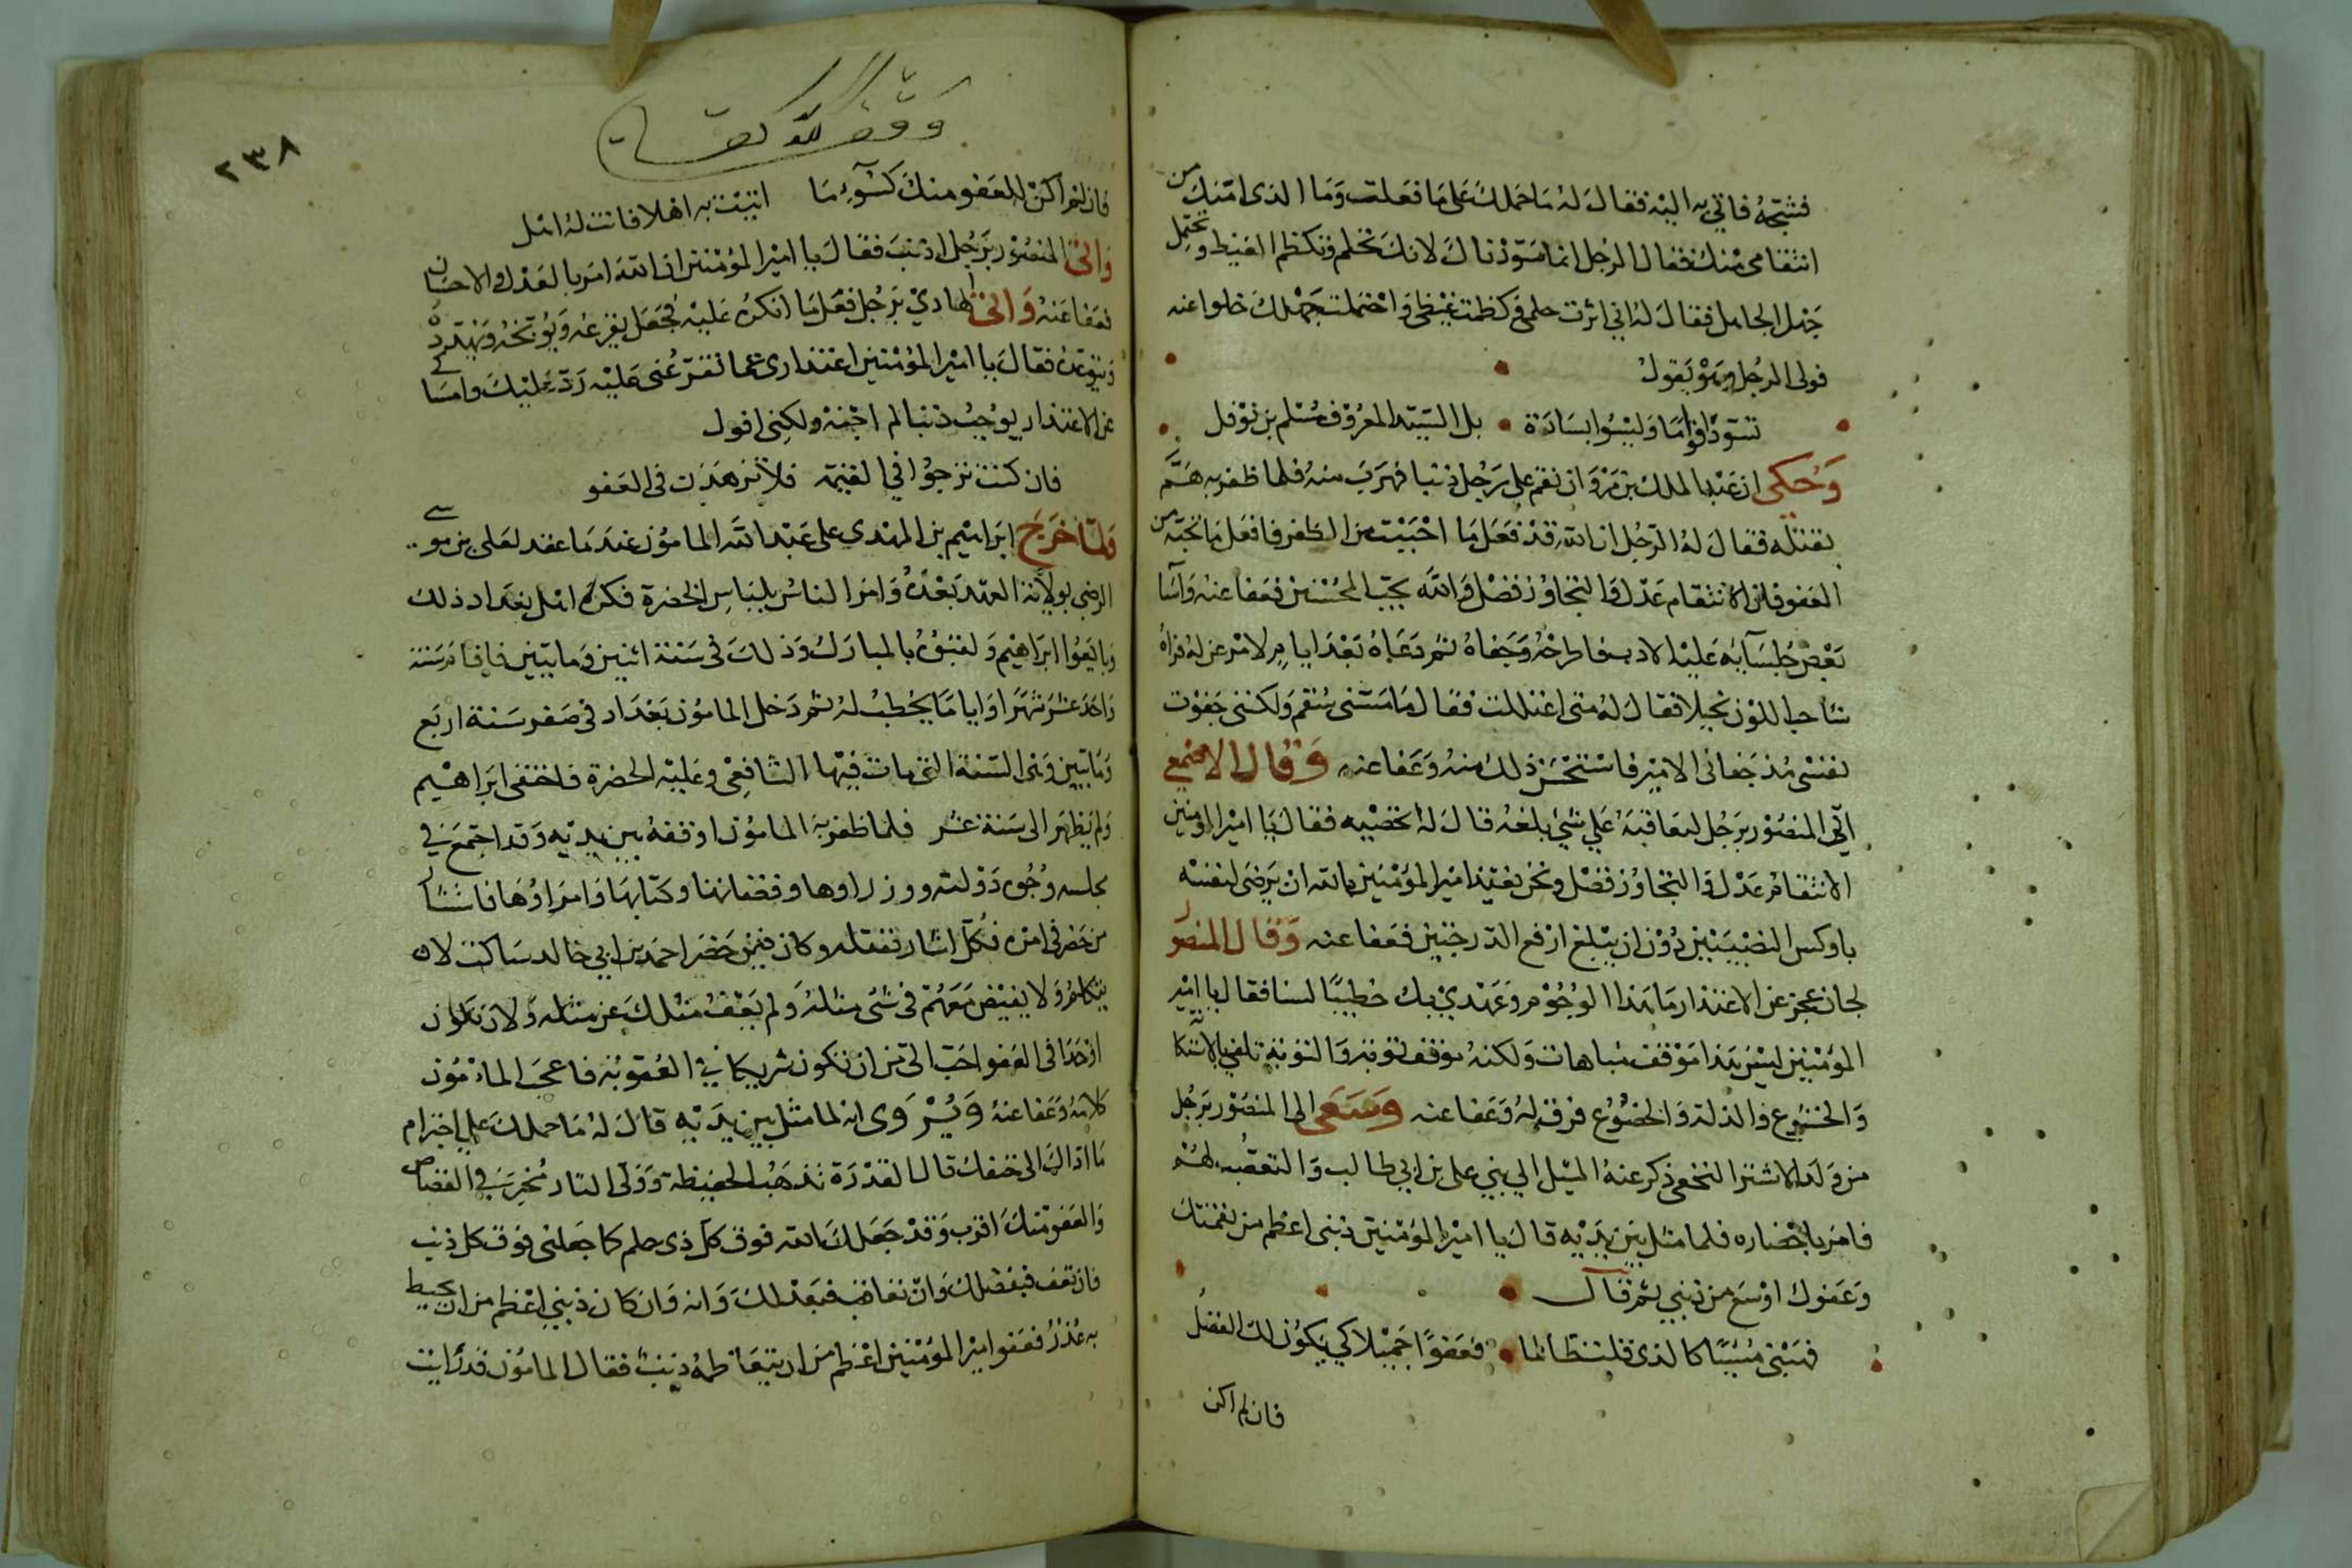 فشجه فاتي به اليه فقال له ما حملك على ما فعلت وما الذى امنك من
انتقامي منك فقال الرجل انما سودناك لانك تحلم وتكظم الغيظ وتحتمل
جهل الجاهل فقال له اني اثرت حلمي وكظمت غيظي واحتملت جهلك خلوا عنه
فولى الرجل وهو يقول
تسود اقواما وليسوا بسادة بل السيد المعروف سلم بن نوفل
وحكى ان عبد الملك بن مروان نقم على رجل ذنبا فهرب منه فلما ظفر به هم
بقتله فقال له الرجل ان الله قد فعل ما احببت من الظفر فافعل ما تحبه من
العفو فان الانتقام عدل والتجاوز فضل والله يحب المحسنين فعفا عنه واسا
بعض جلسآيه عليه الادب فاطرحه وجفاه ثم دعا به بعد ايام لامر عن له فراه
شاحب اللون نحيلا فقال له متى اعتللت فقال ما مسنى سقم ولكننى جفوت
نفسى مذ جفانى الامير فاستحسن ذلك منه وعفا عنه وقال الاصمعي
اتي المنصور برجل ليعاقبه علي شئ بلغه قال له فقال يا امير المومنين
الانتقام عدل والتجاوز فضل ونحن نعيذ امير المؤمنين بالله ان يرضى لنفسه
باوكس النصيبين دون ان يبلغ ارفع الدرجتين فعفا عنه وقال المنصور
لجان عجز عن الاعتذار ما هذا الوجوم وعهدي بك خطيبا لسنا فقال يا امير
المؤمنين ليس هذا موقف مباهات ولكنه موقف توبة والتوبة تلقي بالاستكا
والخشوع والذلة والخضوع فرق له وعفا عنه وسعى الى المنصور برجل
من ولد الاشتر النخعي ذكر عنه الميل الي بني على بن ابي طالب والتعصب لهم
فامر باحضاره فلما مثل بين يديه قال يا امير المؤمنين ذنبى اعظم من نقمتك
وعفوك اوسع من ذنبي ثم قال
فهبني مسيئا كالذى قلت ظالما فعفوا جميلا كي يكون لك الفضل
فان لم اكن
وقف لله تعالى
٢٣٨
فان لم اكن للعفو منك لسوء ما اتيت به اهلا فانت له اهل
واتى المنصور برجل اذنب فقال يا امير المؤمنين ان الله امر بالعدل والاحسان
فعفا عنه واتى الهادي برجل فعل ما انكره عليه فجعل يقرعه ويوبخه ويتهدده
ويتوعده فقال يا امير المؤمنين اعتذارى عما تقرعنى عليه رد عليك وامساكي
عن الاعتذار يوجب ذنبا لم اجنه ولكنى اقول
فان كنت ترجو في العقوبة فلا تزهدن في العفو
ولما خرج ابراهيم بن المهدى على عبد الله المامون عندما عقد لعلى بن موسى
الرضى بولاية العهد بعده وامر الناس بلباس الخضرة فكره اهل بغداد ذلك
وبايعوا ابراهيم ولقبوه بالمبارك وذلك في سنة اثنين ومايتين فاقام سنة
واحد عشر شهرا واياما يخطب له ثم دخل المامون بغداد في صفر سنة اربع
ومايتين وهى السنة التى مات فيها الشافعى وعليه الخضرة فاختفى ابراهيم
ولم يظهر الى سنة عشر فلما ظفر به المامون اوقفه بين يديه وقد اجتمع في
مجلسه وجوه دولته ووزراوها وقضاتها وكتابها وامراوها فاستشار
من حضر في امره فكل اشار بقتله وكان فيمن حضر احمد بن ابي خالد ساكت لا
يتكلم ولا يفيض معهم في شئ مثله ولم يعف مثلك عن مثله ولان تكون
اوحدا في العفو احب الى من ان تكون شريكا في العقوبة فاعجب المامون
كلامه وعفا عنه ويروى انه لما مثل بين يديه قال له ما حملك على اخترام
ما اداك الى حتفك قال القدرة تذهب الحفيظة وولى الثار مخير في القصاص
والعفو منك اقرب وقد جعلك الله فوق كل ذى حلم كما جعلنى فوق كل ذنب
فان تعف فبفضلك وان تعاقب فبعدلك وانه وان كان ذنبي اعظم من ان يحيط
به عذر فعفو امير المؤمنين اعظم من ان يتعاظمه ذنب فقال المامون قد رايت